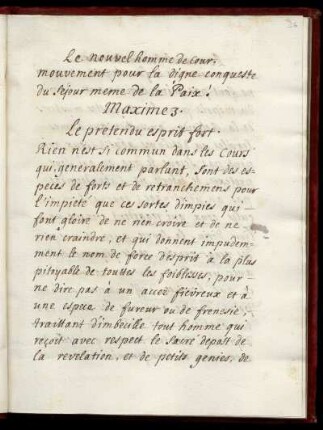 Le nouvel homme de cour,
mouvement pour la digne conqueste
du sejour meme de la Paix.
Maxime 3.
Le pretendu esprit fort.
Rien n'est si commun dans les Cours
qui, generalement parlant, sont des es-
peces de forts et de retranchemens pour
l'impieté que ces sortes d'impies qui
font gloire de ne rien croire et de ne
rien craindre, et qui donnent impudem-
ment le nom de force d'esprit à la plus
pitoyable de touttes les foiblesses, pour
ne dire pas à un accès fievreux et à
une espece de fureur ou de frenesie;
traittant d'imbecille tout homme qui
reçoit avec respect le sacré depast de
la revelation, et de petits genies, de